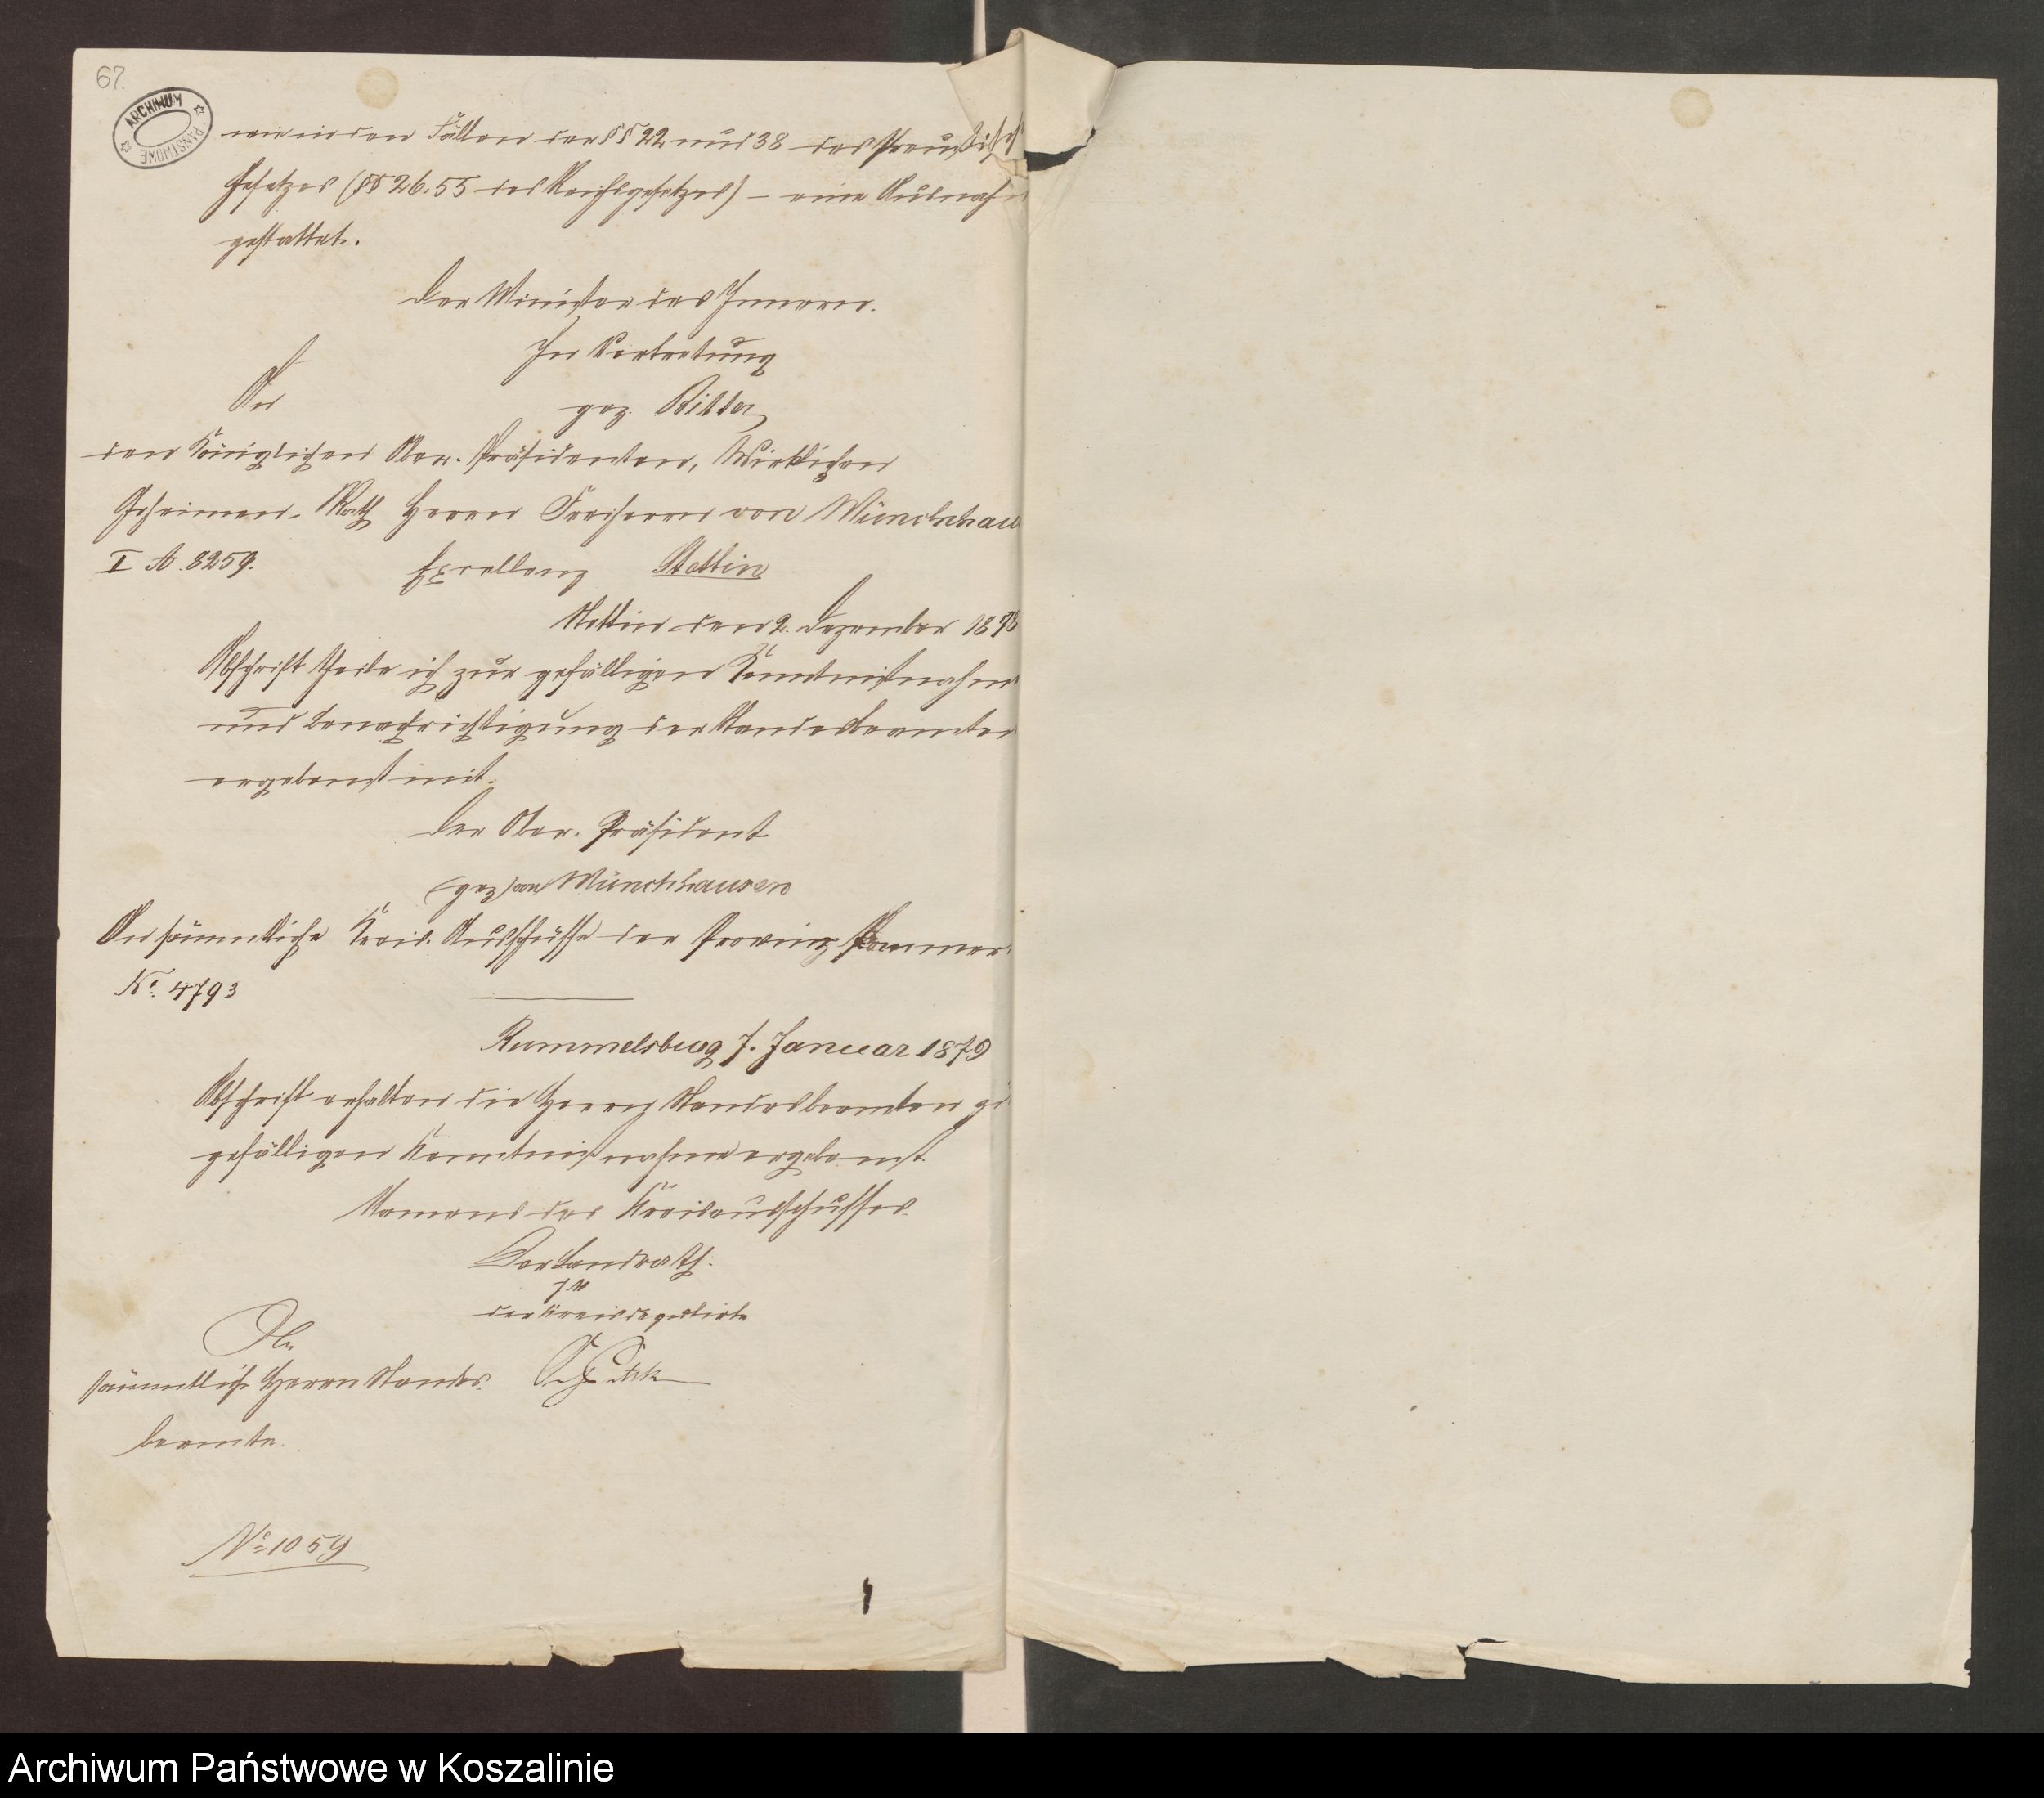 67.
ARCHIWUM PAŃSTWOWE
wie in den Fällen der §§ 22 und 38 des Preußisch
Gesetzes (§§ 26. 55 des Reichsgesetzes) – eine Ausnahm
gestattet.
Der Minister des Innern.
In Vertretung
gez. Ritter
An
den Königlichen Ober-Präsidenten, Wirklichen
Geheimen-Rath Herrn Freiherrn von Münchhau
I A. 8259. Excellenz Stettin
Stettin den 2. Dezember 1878
Abschrift theile ich zur gefälligen Kenntnißnahme
und Benachrichtigung der Standesbeamten
ergebenst mit.
Der Ober-Präsident
(gez) von Münchhausen
An sämmtliche Kreis-Ausschüsse der Provinz Pommern
No. 4793
Rummelsburg 7. Januar 1879
Abschrift erhalten die Herren Standesbeamten zu
gefälligen Kenntnißnahme ergebenst
Namens des Kreisausschusses.
Der Landrath.
der Kreisdeputirte
An
sämmtliche Herren Standes-
beamte.
No 1059
Archiwum Państwowe w Koszalinie